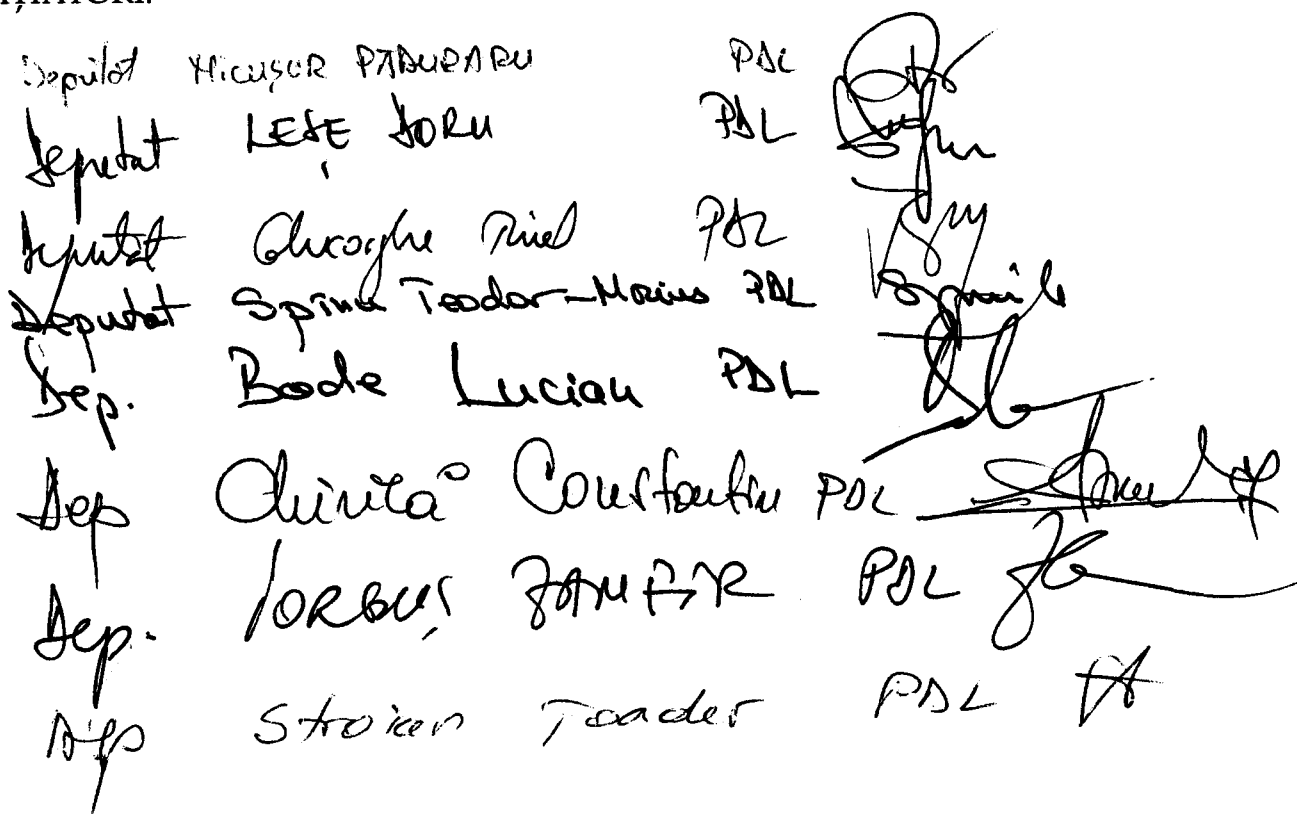 Deputat Nicușor PĂDURARU PDL
Deputat LEȘE DORU PDL
Deputat Gheorghe Tinel PDL
Deputat Spînu Teodor-Marius PDL
Dep. Bode Lucian PDL
Dep Chiriță Constantin PDL
Dep. IORGUȘ ZAMFIR PDL
Dep Stroian Toader PDL